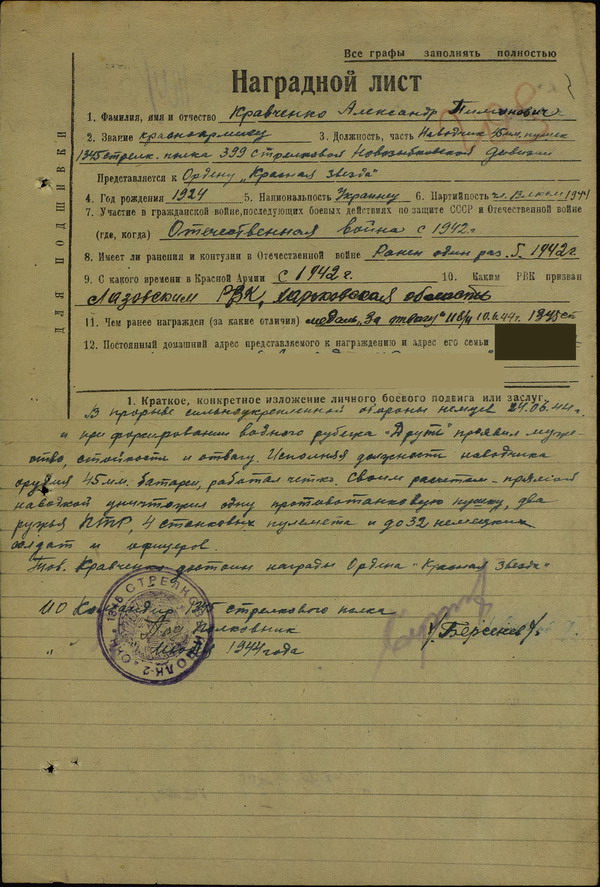 Все графы заполнять полностью
Наградной лист
1. Фамилия, имя и отчество Кравченко Александр Тимонович
2. Звание красноармеец 3. Должность, часть Наводчик 45 мм. пушек
1345 стрелк. полка 399 стрелковой Новозыбковской дивизии
Представляется к Ордену „Красная Звезда"
4. Год рождения 1924 5. Национальность Украинец 6. Партийность чл. ВЛКСМ 1944
7. Участие в гражданской войне, последующих боевых действиях по защите СССР и Отечественной войне
(где, когда) Отечественная война с 1942г.
8. Имеет ли ранения и контузии в Отечественной войне Ранен один раз 5. 1942г
9. С какого времени в Красной Армии с 1942 г. 10. Каким РВК призван
Лазовским РВК, Харьковская область
11. Чем ранее награжден (за какие отличия) медаль „За отвагу" 118/н 10.6.44г. 1345 сп
12. Постоянный домашний адрес представляемого к награждению и адрес его семьи
ДЛЯ ПОДШИВКИ
1. Краткое, конкретное изложение личного боевого подвига или заслуг.
В прорыве сильноукрепленной обороны немцев 24.06.44г.
и при форсировании водного рубежа „Друть" проявил муже-
ство, стойкость и отвагу. Исполняя должность наводчика
орудия 45 мм. батареи, работал четко. Своим расчетом - прямой
наводкой уничтожил одну противотанковую пушку, два
ружья ПТР, 4 станковых пулемета и до 32 немецких
солдат и офицеров.
Тов. Кравченко достоин награды Ордена "Красная Звезда"
ИО Командир 1345 стрелкового полка
Полковник
/Берсенев/
1944 года